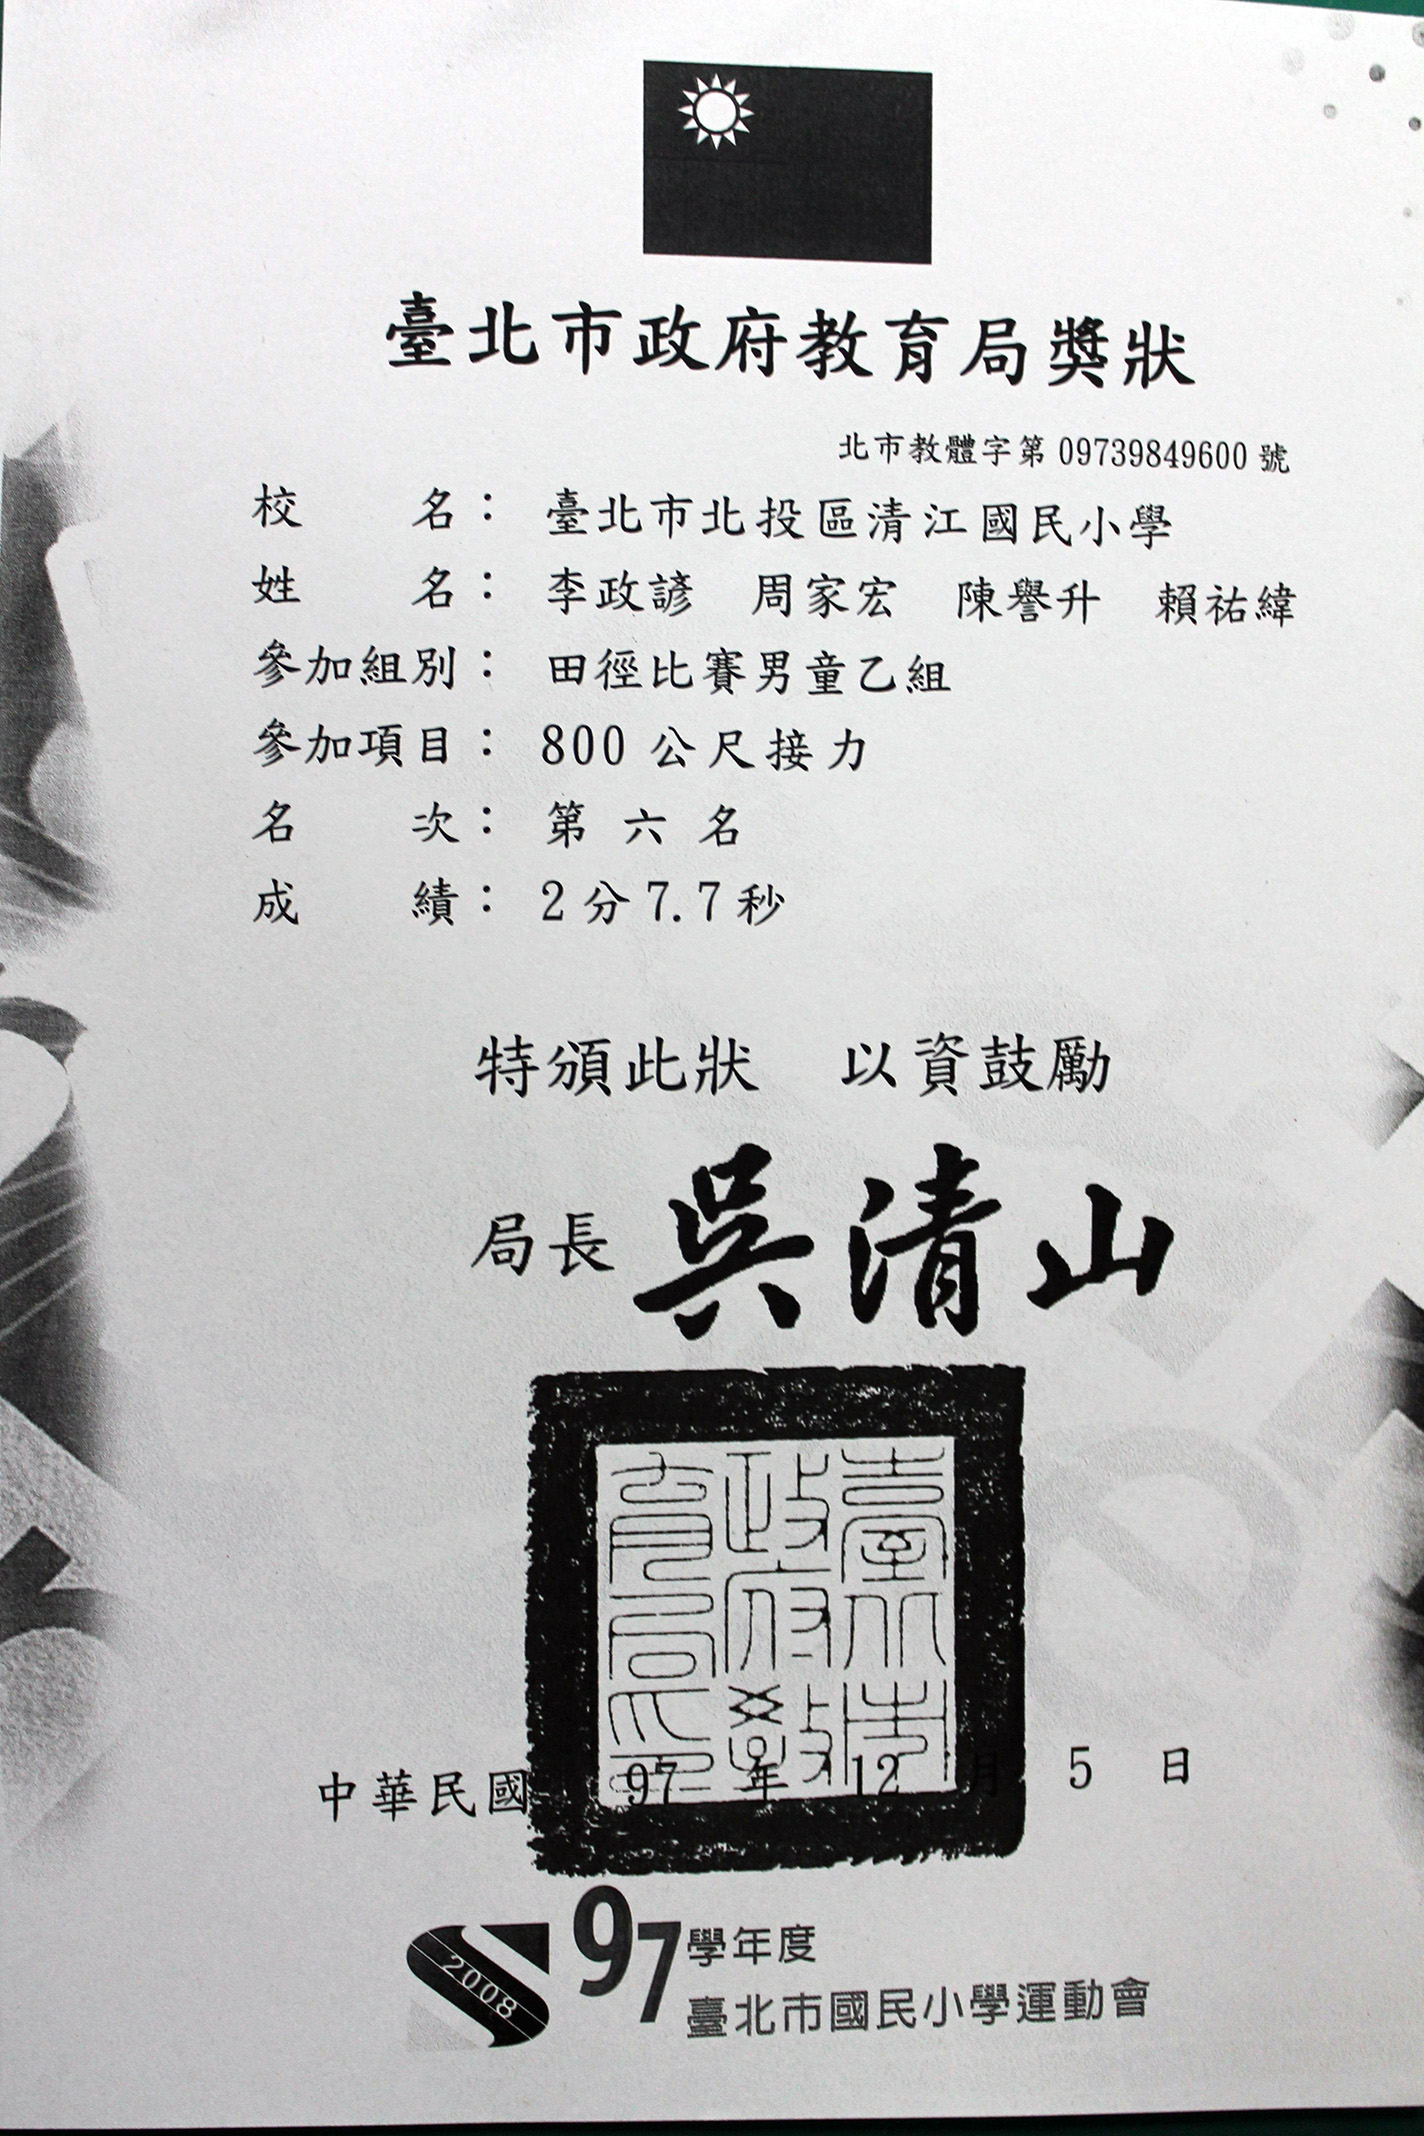 臺北市政府教育局獎狀
北市教體字第09739849600號
校名：臺北市北投區清江國民小學
姓名：李政諺 周家宏 陳譽升 賴祐緯
參加組別：田徑比賽男童乙組
參加項目：800公尺接力
名次：第六名
成績：2分7.7秒
特頒此狀 以資鼓勵
局長 吳清山
臺北市政府教育局印
中華民國 97 年 12 月 5 日
2008
97學年度
臺北市國民小學運動會